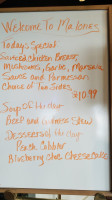 Welcome To Malones
Todays Special
Sauteed Chicken Breast,
Mushrooms, Garlic, Marsala
Sauce and Parmesan
Choice of Two Sides
$10.99
Soup of the Hour
Beef and Stew
Desserts of the Day
Peach Cobbler
Blueberry Choc. Cheesecake